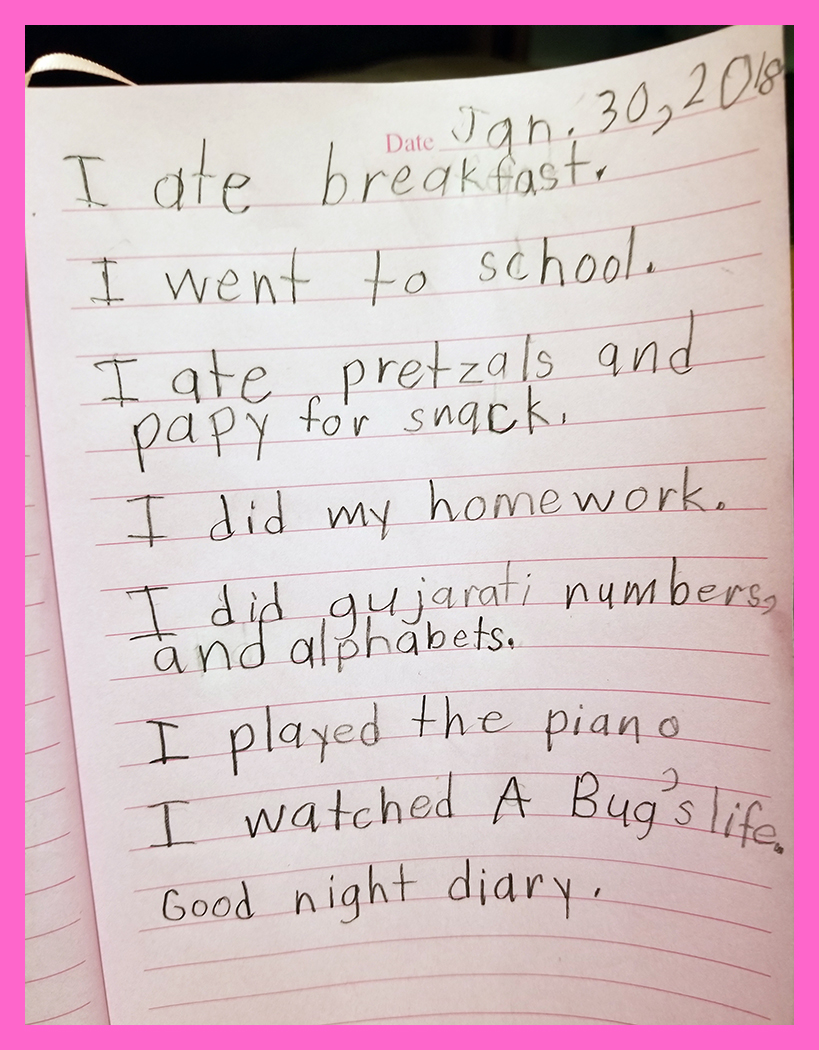 Date Jan. 30, 2018
I ate breakfast.
I went to school.
I ate pretzals and
papy for snack.
I did my homework.
I did gujarati numbers,
and alphabets.
I played the piano
I watched A Bug's life.
Good night diary.